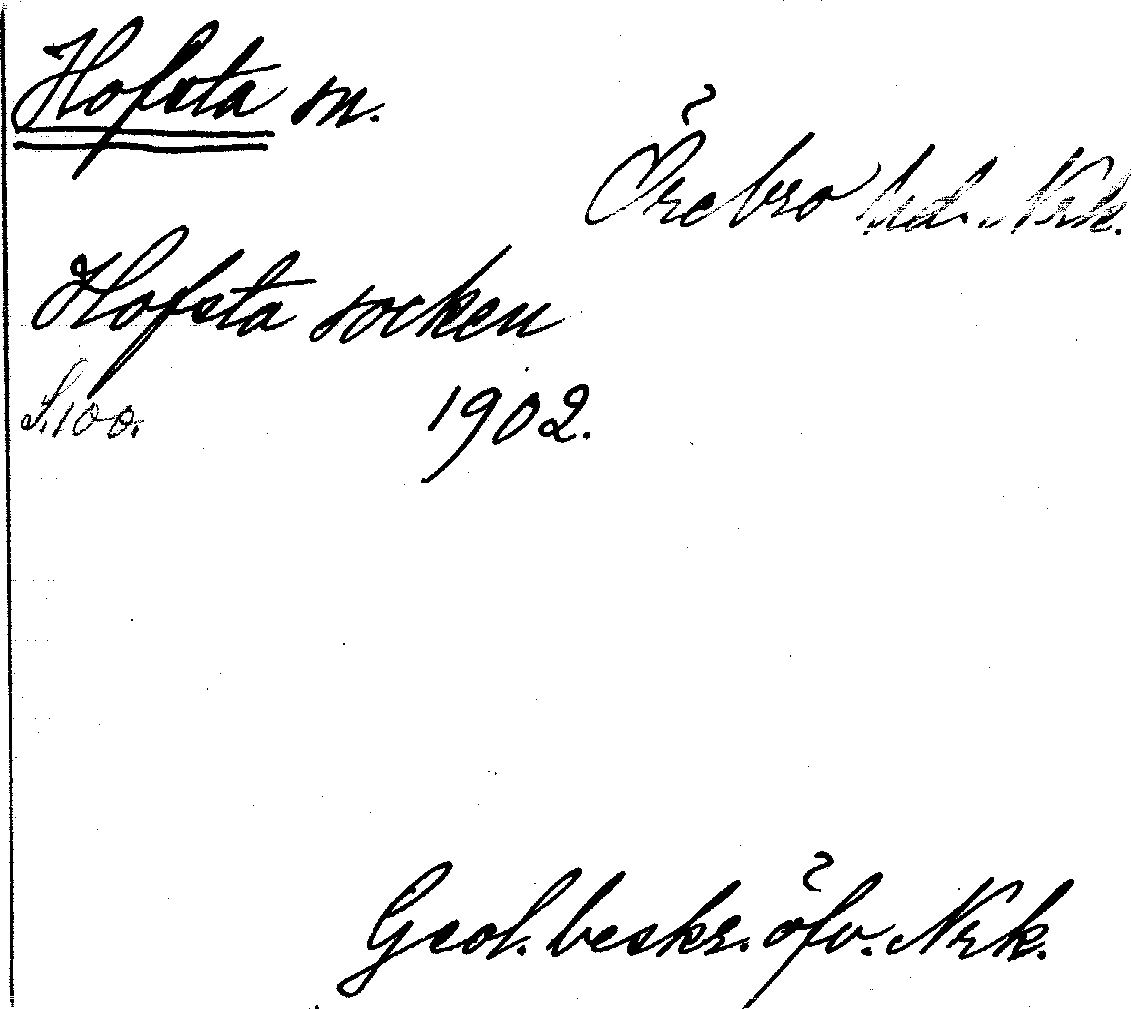 Hofsta sn.
Örebro hd. Nrk.
Hofsta socken
S. 100.
1902.
Geol. beskr. öfv. Nrk.